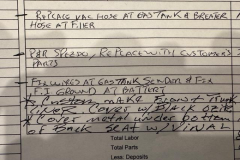 - REPLACE VAC HOSE AT GAS TANK & BREATER
HOSE AT FILER
- REPLACE WITH CUSTOMER'S
PARTS
- AT GAS TANK SENDON & FIX
F.I GROUND AT BATTERY
& CUSTOM MAKE FRONT TRUNK
COVER W/BLACK
& COVER METAL UNDER BOTTOM
OF BACK SEAT W/VINAL
Total Labor
Total Parts
Less: Deposits